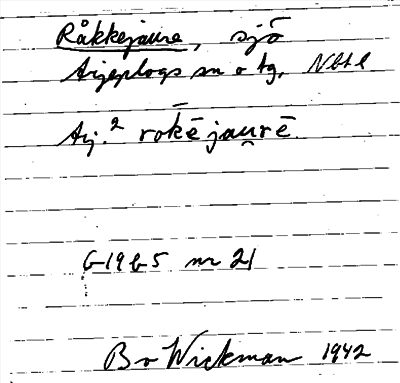 Råkkejaure, sjö
Arjeplogs sn o tg, Nbtl
Arj.² rokē jau̯rē
G 19 b 5 nr 21
Bo Wickman 1942